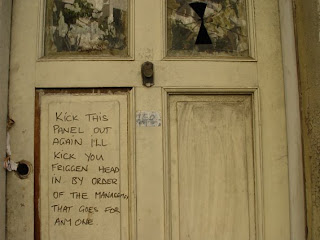 KICK THIS
PANEL OUT
AGAIN I'LL
KICK YOU
FEIGGEN HEAD
IN. BY ORDER
OF THE
THAT GOES FOR
ANY ONE.